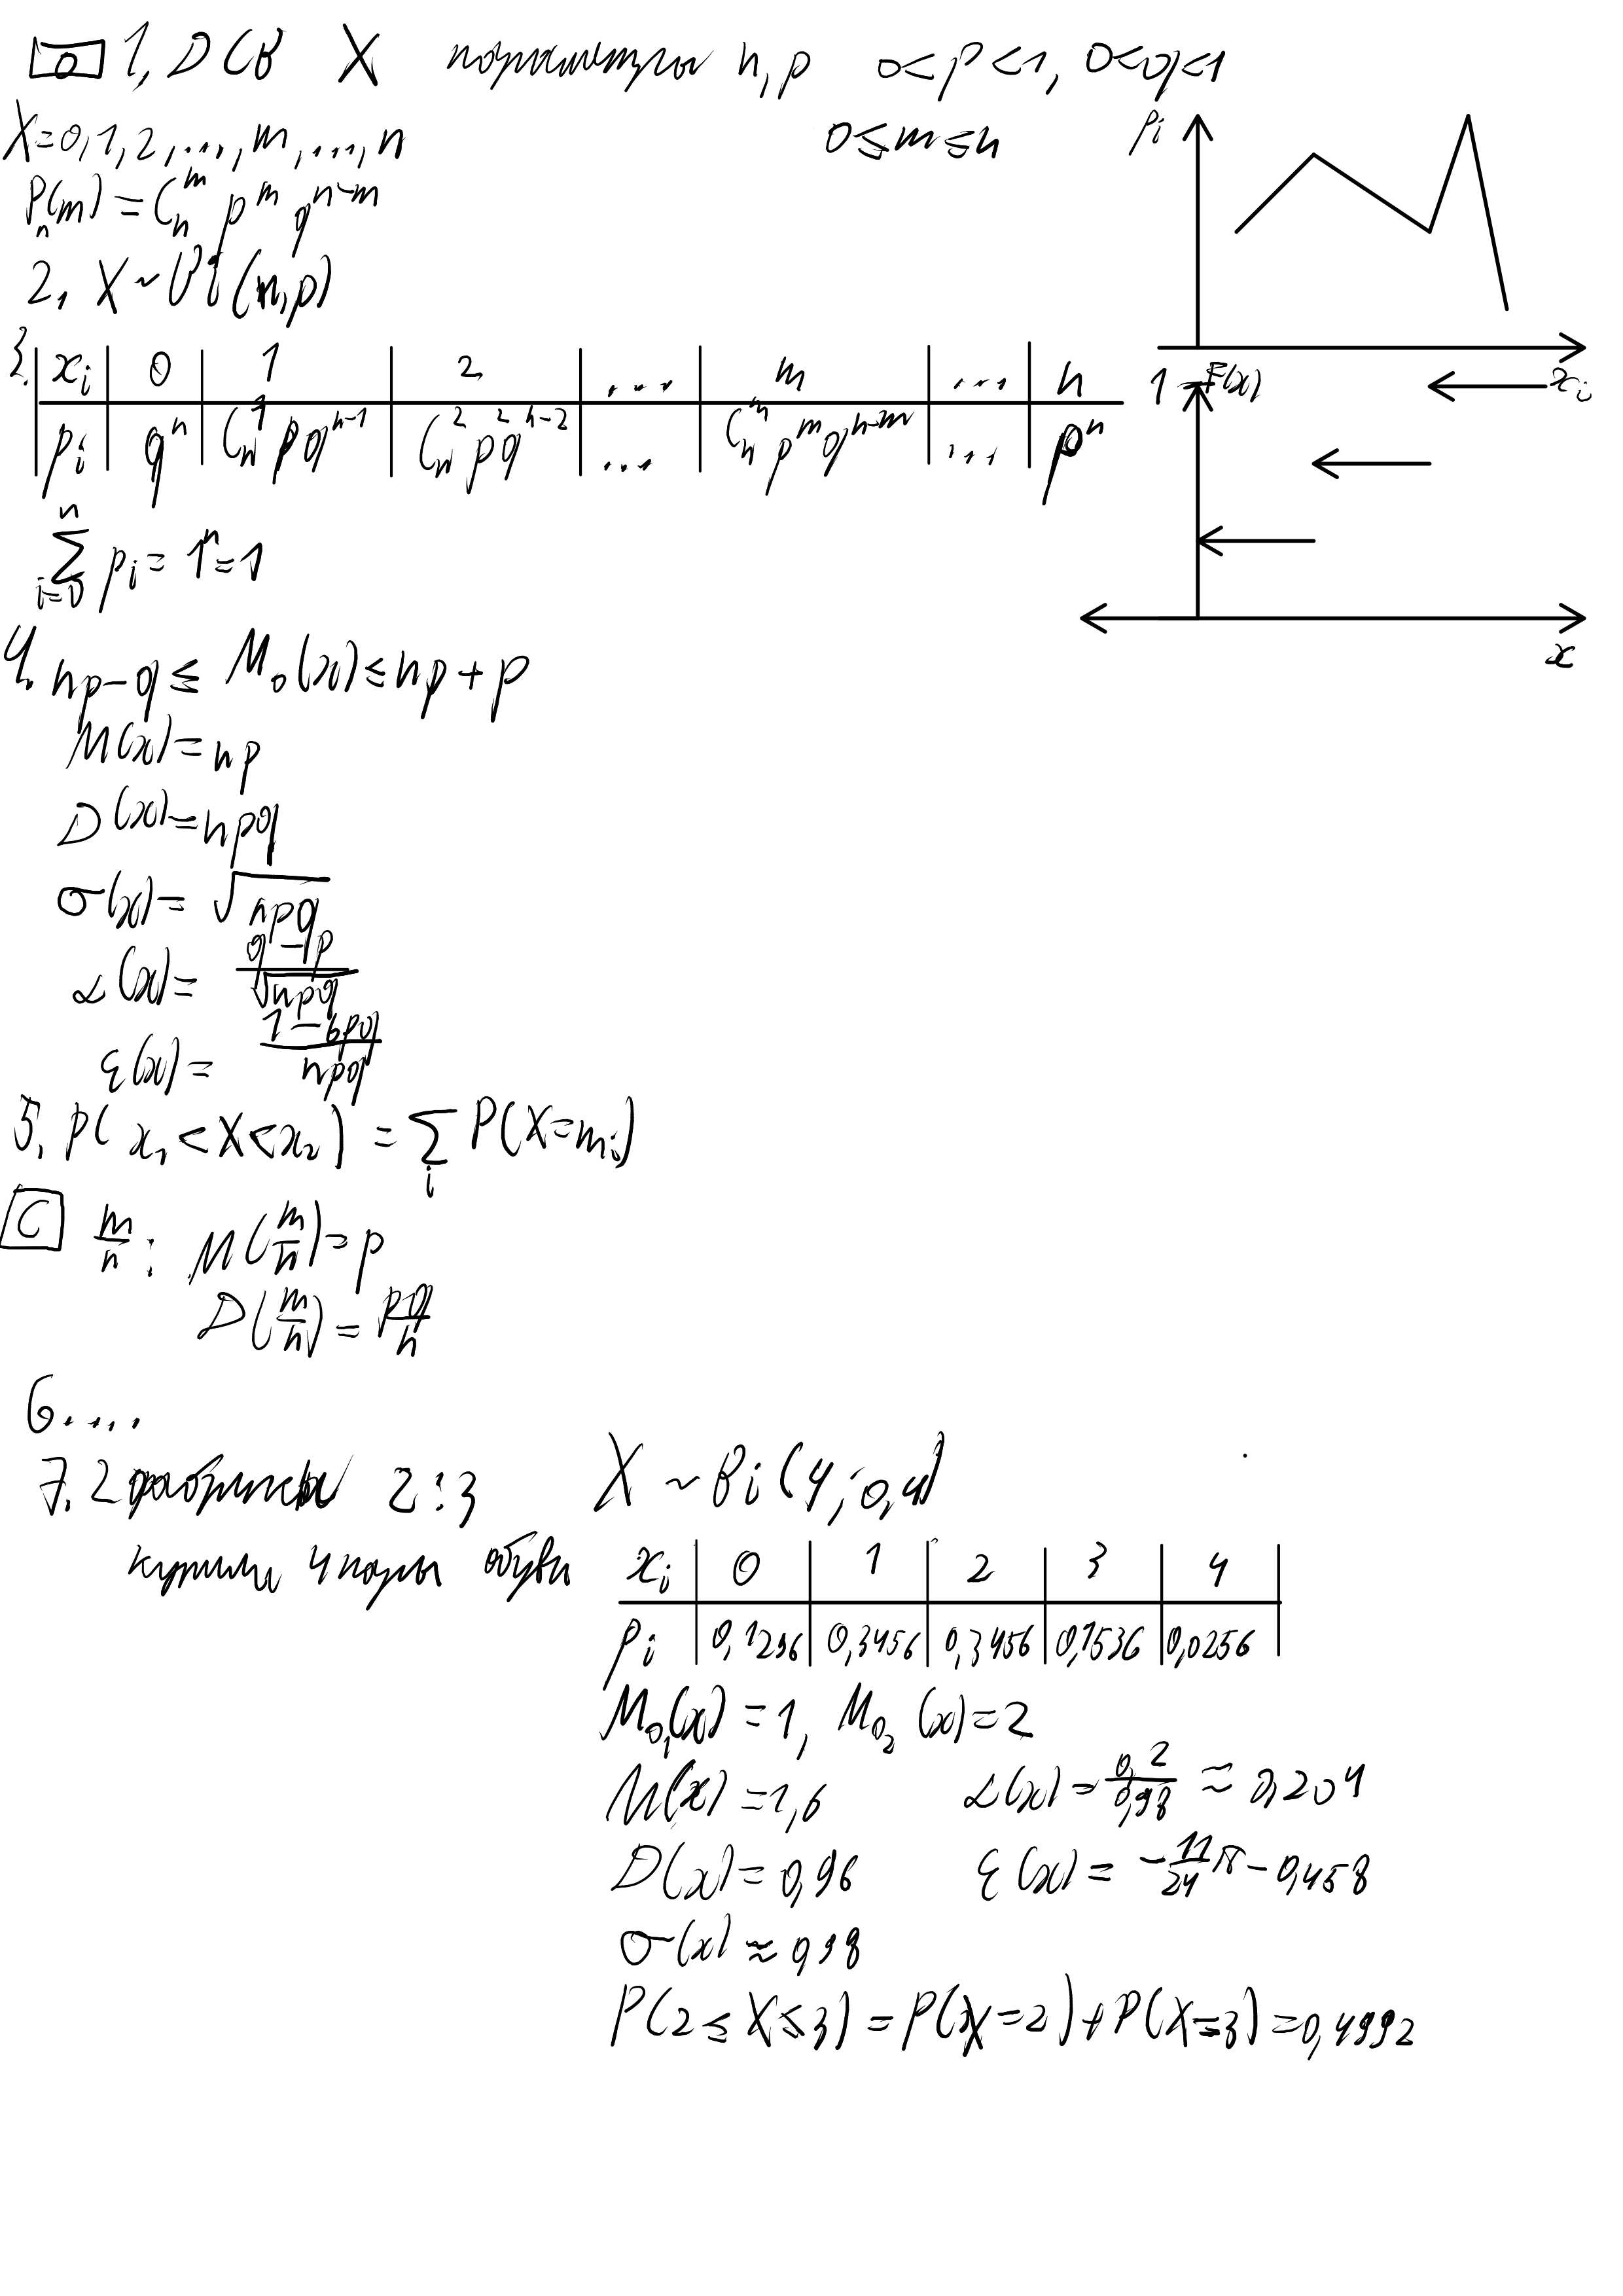 О 1. ДСВ X параметры n, p 0<p<1, 0<q<1
X=0,1,2,...,m,...,n 0≤m≤n
Pₙ(m) = Cₙᵐ pᵐ qⁿ⁻ᵐ
2. X~Bi(n,p)
3. xᵢ 0 1 2 .... m .... n
pᵢ qⁿ Cₙ¹pqⁿ⁻¹ Cₙ²p²qⁿ⁻² ... Cₙᵐpᵐqⁿ⁻ᵐ ... pⁿ
pᵢ
xᵢ
1 F(x)
x
n
∑ pᵢ = 1ⁿ = 1
i=0
4. np−q ≤ M₀(x) ≤ np+p
M(x)=np
D(x)=npq
σ(x)= √npq
α(x)= (q−p)/√npq
ε(x)= (1−6pq)/npq
5. P(x₁<X<x₂) = ∑ᵢ P(X=mᵢ)
C m/n: M(m/n)=p
D(m/n)=pq/n
6....
7. 2 фабрики 2:3 X~Bi(4; 0,4)
купили 4 пары обуви
xᵢ 0 1 2 3 4
pᵢ 0,1296 0,3456 0,3456 0,1536 0,0256
M₀₁(x)=1, M₀₂(x)=2
M(x)=1,6 α(x)=0,2/0,98≈0,204
D(x)=0,96 ε(x)=−11/24≈−0,458
σ(x)≈0,98
P(2≤X≤3)=P(X=2)+P(X=3)=0,4992